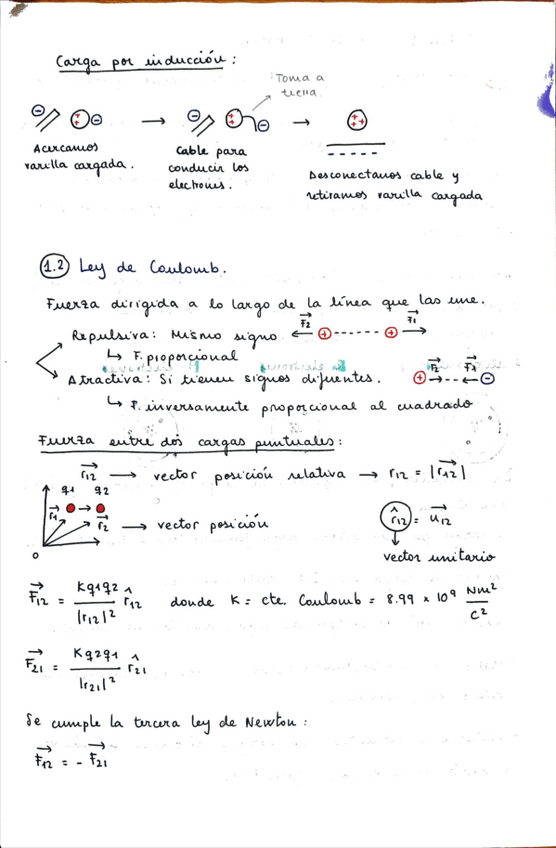 Carga por inducción:
Toma a
tierra
Acercamos
varilla cargada.
Cable para
conducir los
electrones.
Desconectamos cable y
retiramos varilla cargada
1.2 Ley de Coulomb.
Fuerza dirigida a lo largo de la línea que las une.
Repulsiva: Mismo signo ← F₂ ⊕ ------ ⊕ → F₁
↳ F. proporcional
Atractiva: Si tienen signos diferentes. ⊕ → F₂ -- ← F₁ ⊖
↳ F. inversamente proporcional al cuadrado
Fuerza entre dos cargas puntuales:
r⃗12 → vector posición relativa → r12 = |r⃗12|
q1 q2
r⃗1 r⃗2 → vector posición r̂12 = u⃗12
0
vector unitario
F⃗12 = Kq1q2 / |r12|² r̂12 donde K = cte. Coulomb = 8.99 × 10⁹ Nm² / C²
F⃗21 = Kq2q1 / |r21|² r̂21
Se cumple la tercera ley de Newton:
F⃗12 = - F⃗21